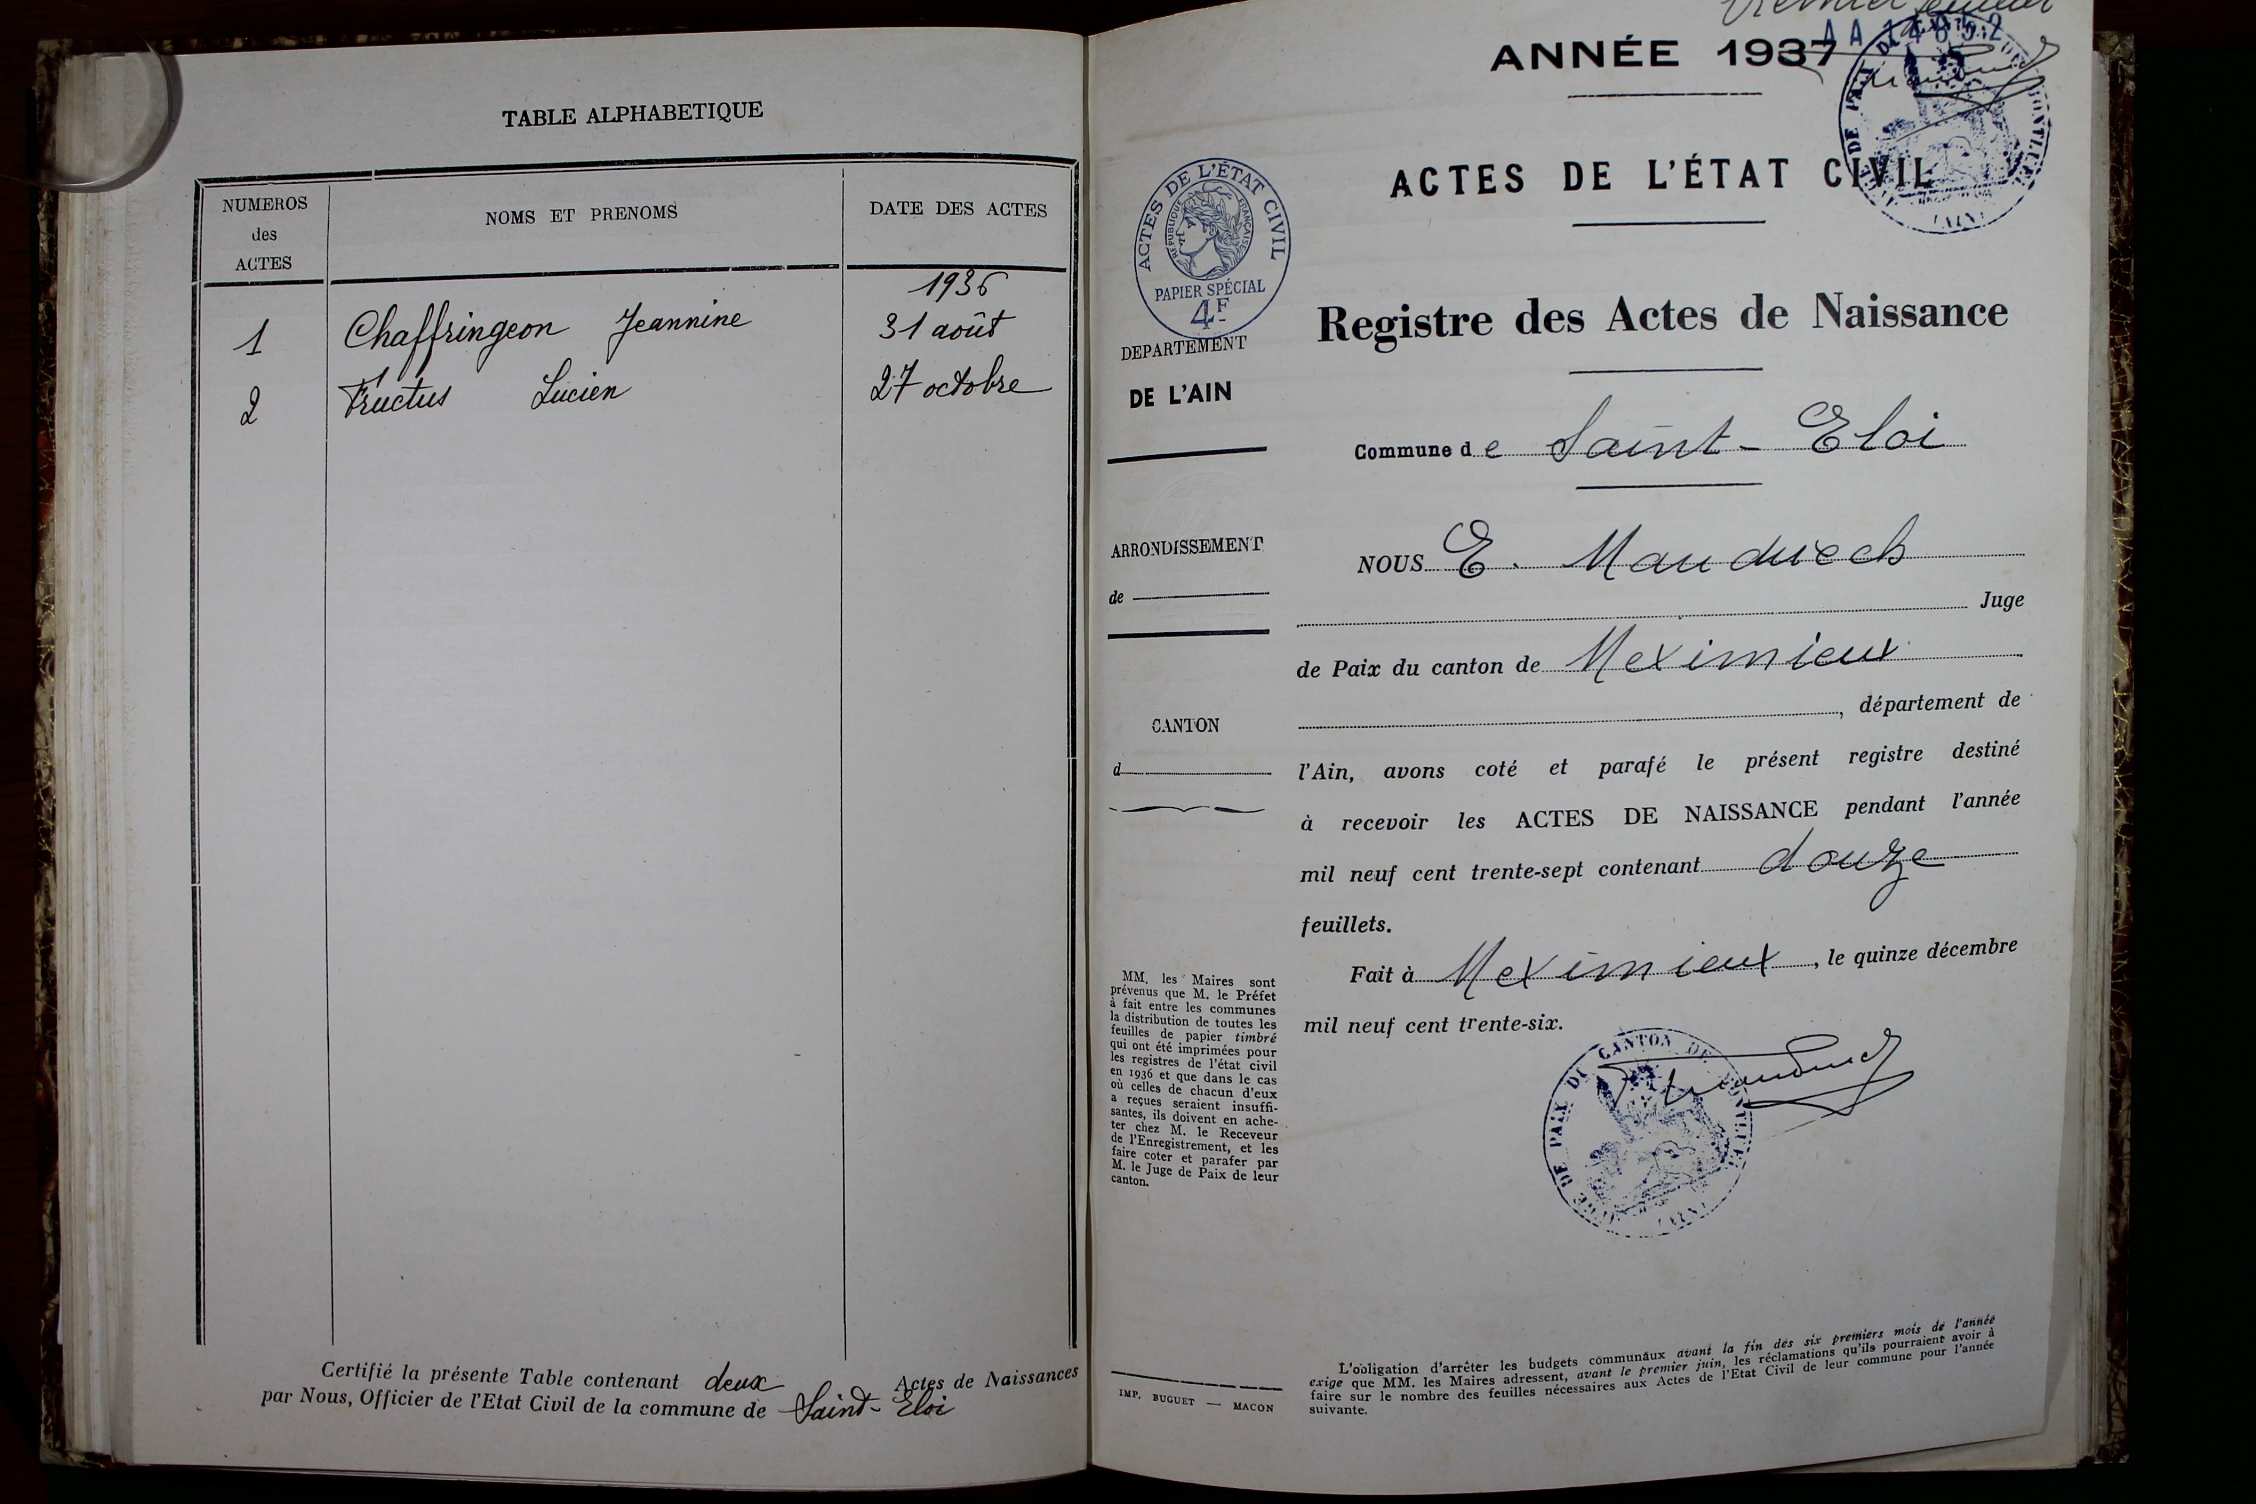 TABLE ALPHABETIQUE
NUMEROS
des
ACTES
NOMS ET PRENOMS
DATE DES ACTES
1936
1 Chaffringeon Jeannine 31 août
2 Fructus Lucien 27 octobre
Certifié la présente Table contenant deux Actes de Naissances
par Nous, Officier de l'Etat Civil de la commune de Saint-Eloi
Premier feuillet
AA 14852
ANNÉE 1937
ACTES DE L'ÉTAT CIVIL
ACTES DE L'ÉTAT CIVIL
RÉPUBLIQUE FRANÇAISE
PAPIER SPÉCIAL
4F
DEPARTEMENT
DE L'AIN
ARRONDISSEMENT
de
CANTON
d
MM. les Maires sont
prévenus que M. le Préfet
à fait entre les communes
la distribution de toutes les
feuilles de papier timbré
qui ont été imprimées pour
les registres de l'état civil
en 1936 et que dans le cas
où celles de chacun d'eux
a reçues seraient insuffi-
santes, ils doivent en ache-
ter chez M. le Receveur
de l'Enregistrement, et les
faire coter et parafer par
M. le Juge de Paix de leur
canton.
IMP. BUGUET — MACON
Registre des Actes de Naissance
Commune de Saint-Eloi
NOUS E.
Juge
de Paix du canton de Meximieux
, département de
l'Ain, avons coté et parafé le présent registre destiné
à recevoir les ACTES DE NAISSANCE pendant l'année
mil neuf cent trente-sept contenant douze
feuillets.
Fait à Meximieux, le quinze décembre
mil neuf cent trente-six.
DE PAIX DU CANTON DE
(AIN)
L'obligation d'arrêter les budgets communaux avant la fin des six premiers mois de l'année
exige que MM. les Maires adressent, avant le premier juin, les réclamations qu'ils pourraient avoir à
faire sur le nombre des feuilles nécessaires aux Actes de l'Etat Civil de leur commune pour l'année
suivante.